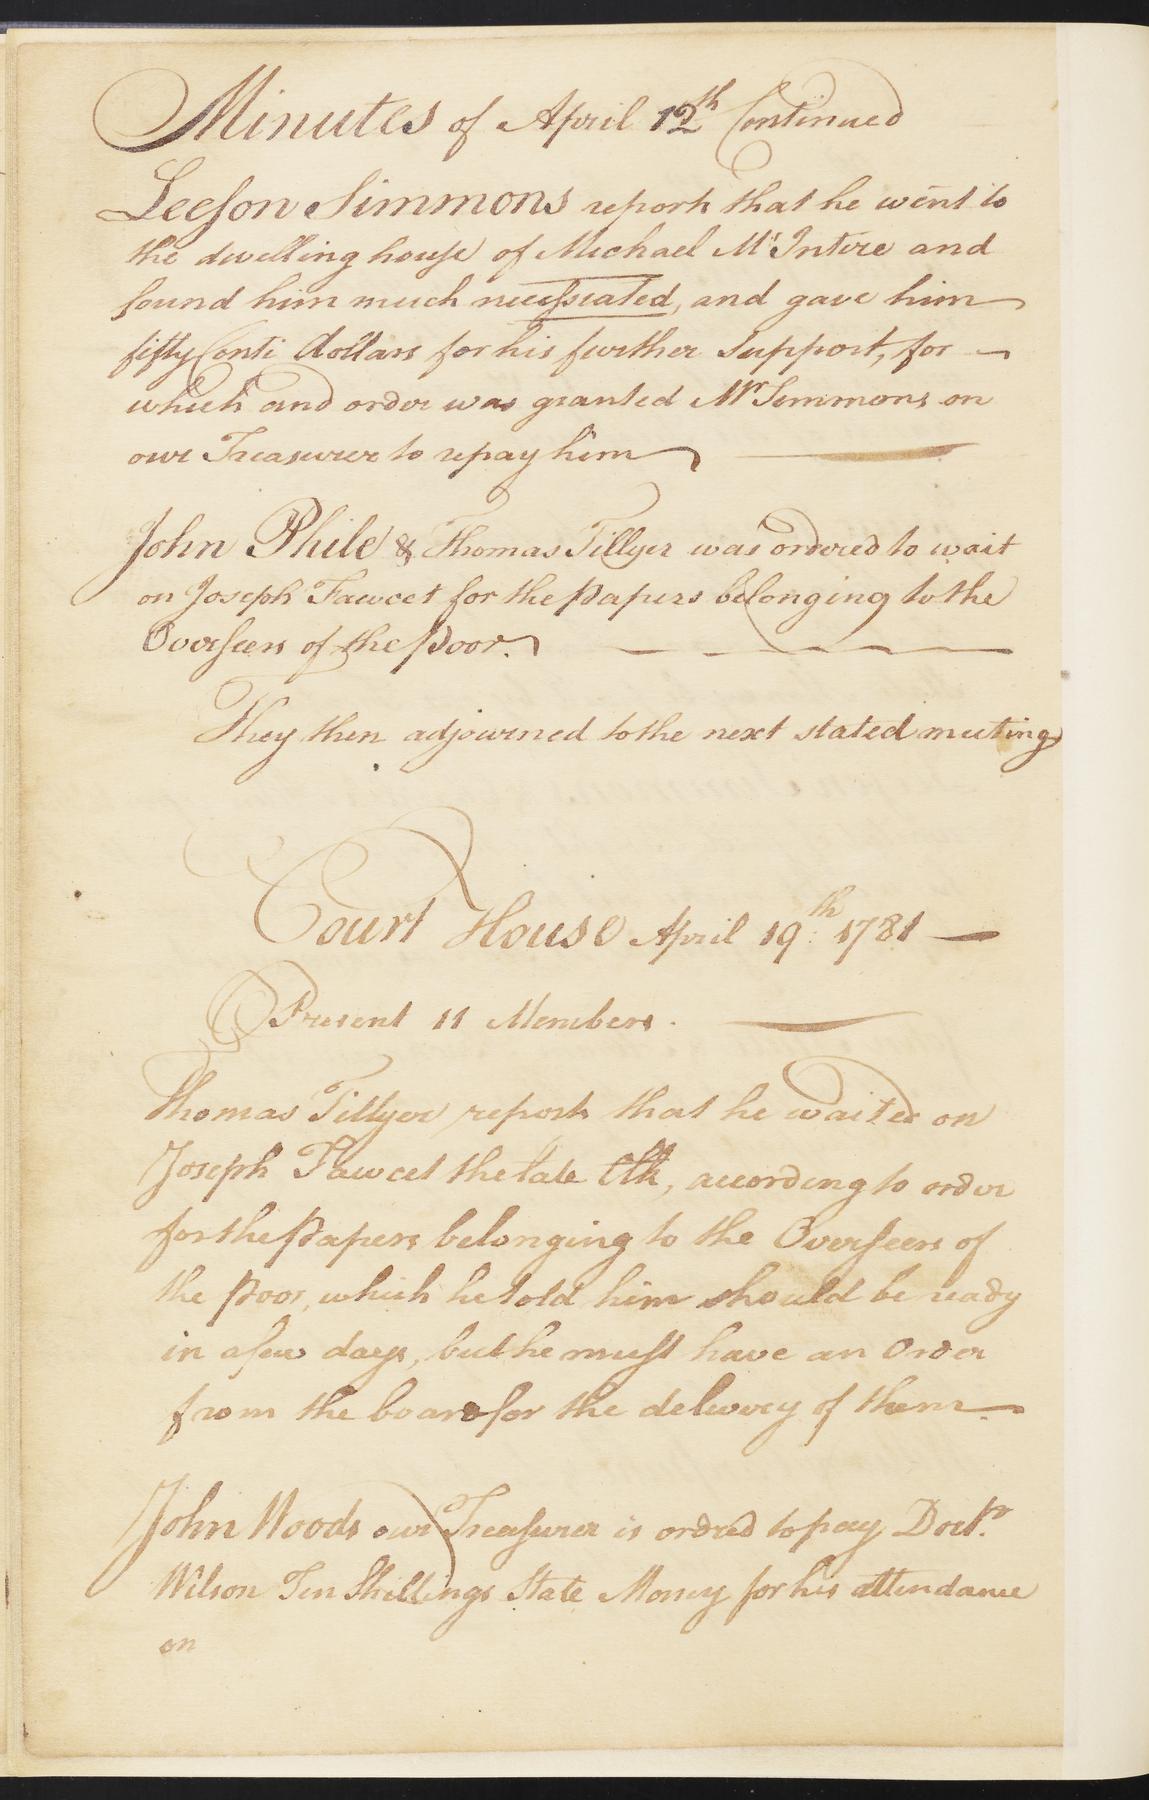 Minutes of April 12th Continued
Leeson Simmons reports that he went to
the dwelling house of Michael Mc Intire and
found him much necessiated, and gave him
fifty Conti Dollars for his further Support, for
which and order was granted Mr Simmons on
our Treasurer to repay him
John Phile & Thomas Tillyer was ordered to wait
on Joseph Fawcet for the Papers belonging to the
Overseers of the Poor.
They then adjourned to the next stated meeting
Court House April 19th 1781
Present 11 Members.
Thomas Tillyer reports that he waited on
Joseph Fawcet the late Clk, according to order
for the Papers belonging to the Overseers of
the Poor, which he told him should be ready
in a few days, but he must have an Order
from the board for the delivery of them
John Woods our Treasurer is ordred to pay Doctr.
Wilson Ten Shillings State Money for his attendance
on